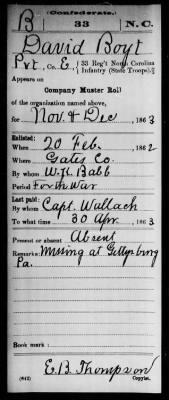 (Confederate.)
B 33 N.C.
David Boyt
Pvt, Co. E, { 33 Reg't North Carolina
Infantry (State Troops). }
Appears on
Company Muster Roll
of the organization named above,
for Nov. & Dec, 1863
Enlisted:
When 20 Feb. 1862
Where Gates Co.
By whom W. H. Babb
Period For th War
Last paid:
By whom Capt. Wallach
To what time 30 Apr. 1863
Present or absent Absent
Remarks: Missing at Gettysburg
Pa.
Book mark:
E. B. Thompson
(642) Copyist.